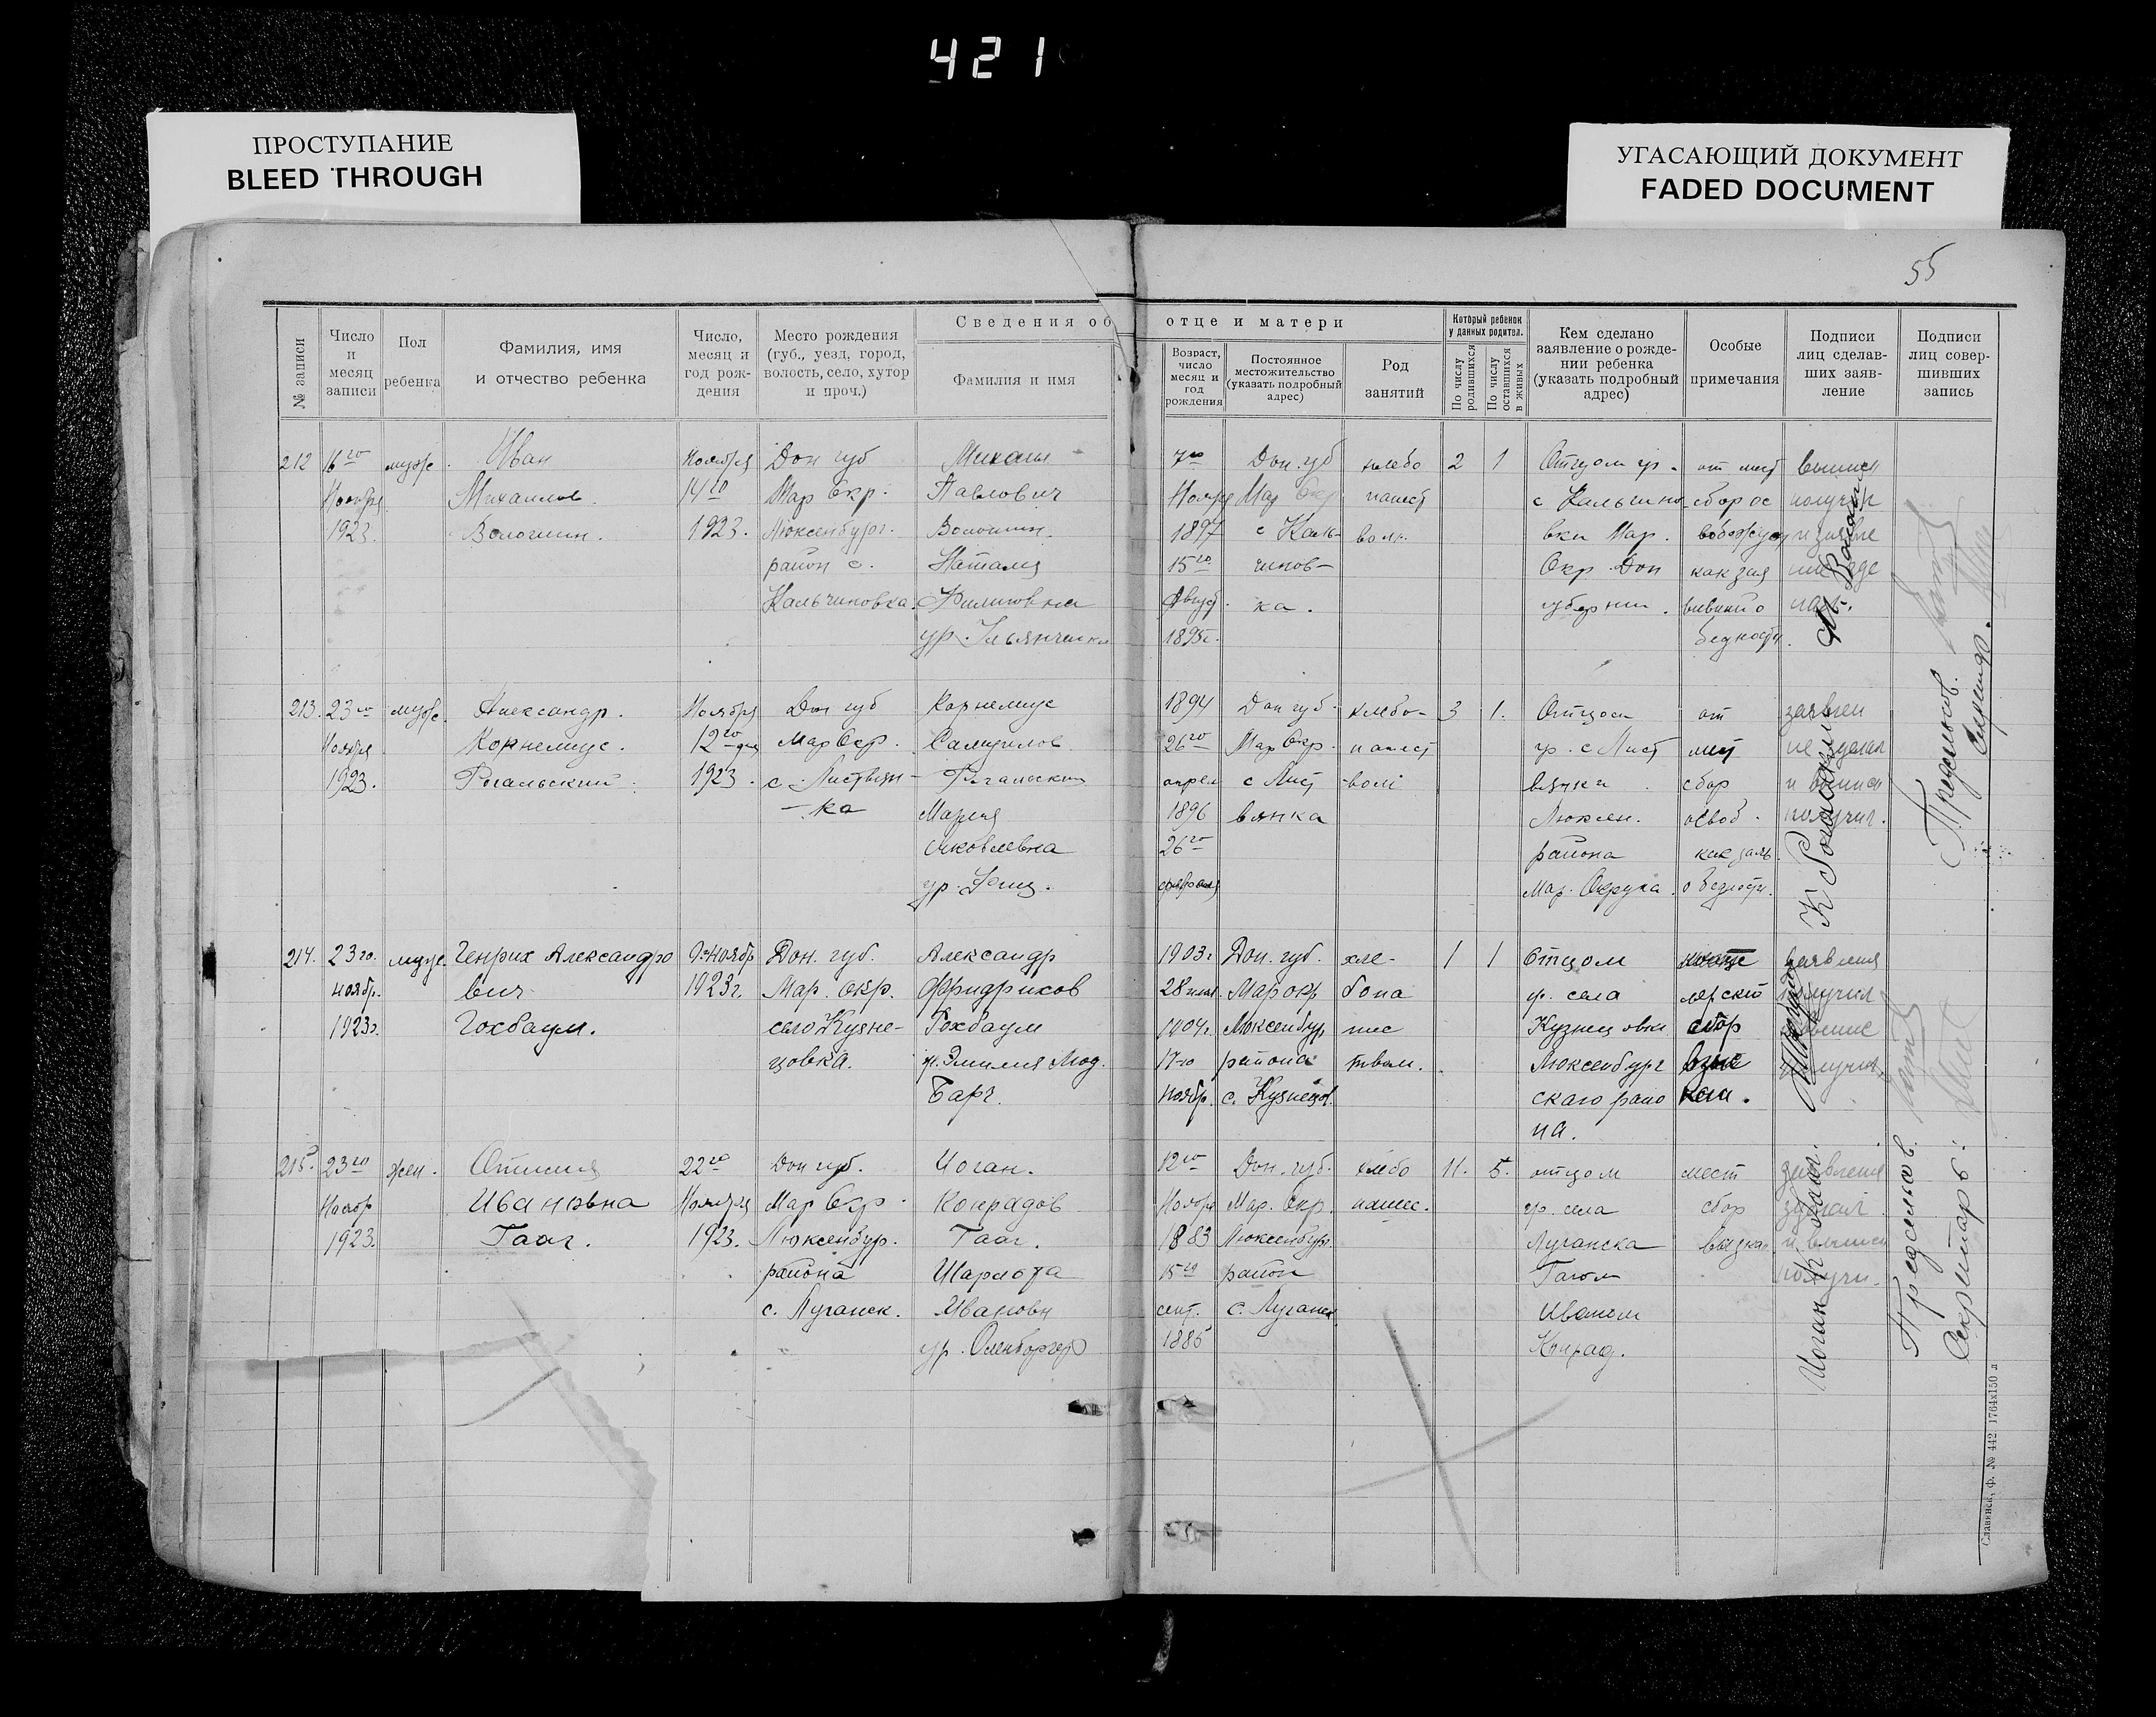 421
ПРОСТУПАНИЕ
BLEED THROUGH
УГАСАЮЩИЙ ДОКУМЕНТ
FADED DOCUMENT
55
№ записи
Число
и
месяц
записи
Пол
ребенка
Фамилия, имя
и отчество ребенка
Число,
месяц и
год рож-
дения
Место рождения
(губ., уезд, город,
волость, село, хутор
и проч.)
Сведения об отце и матери
Фамилия и имя
Возраст,
число
месяц и
год
рождения
Постоянное
местожительство
(указать подробный
адрес)
Род
занятий
Который ребенок
у данных родител.
По числу
родившихся
По числу
оставшихся
в живых
Кем сделано
заявление о рожде-
нии ребенка
(указать подробный
адрес)
Особые
примечания
Подписи
лиц сделав-
ших заяв-
ление
Подписи
лиц совер-
шивших
запись
212
16го
Ноября
1923.
муж.
Иван
Михаилов.
Волошин.
Ноября
14го
1923.
Дон губ
Мар Окр.
Люксенбург.
район с.
Кальчиновка.
Михаил
Павлович
Волошин.
Наталия
Филиповна
ур.
7го
Нояр
1897
15го
Август.
1895г.
Дон. губ
Мар Окр
с Каль-
чинов-
ка.
хлебо
пашест
вом.
2
1
Отцом гр.
с Кальчино
вки Мар.
Окр Дон
губернии.
от мест
сбор ос
вобожден
как зая
вивший о
бедности.
выпись
получил
213.
23го
Ноября
1923.
муж.
Александр.
Корнелиус.
Рогальский.
Ноября
12го дня
1923.
Дон губ
Мар Окр.
с. Листвян-
-ка
Корнелиус
Самуилов
Рогальский
Мария
Яковлевна
ур.
1894
26го
апрел
1896
26го
февраля
Дон губ.
Мар Окр.
с Лист
вянка
хлебо-
пашест
-вом
3
1.
Отцом
гр. с Лист
вянки
Люксен.
района
Мар. Округа.
от
мест
сбор
освоб.
как заяв.
о бедности.
заявлен
и выписи
получил.
К Рогальский
Председатель.
Секретарь.
214.
23го.
ноябр.
1923г.
муж.
Генрих Александро
вич
Гохбаум.
9го ноябр
1923г.
Дон. губ.
Мар. окр.
село Кузне-
цовка.
Александр
Фридрихов
Гохбаум
гр. Эмилия Люд.
Барч.
1903г
28
1904г.
17го
ноябр.
Дон. губ.
Мар окр
Люксенбур
района
с. Кузнецов.
хле-
бопа
шес
твом.
1
1
Отцом
гр. села
Кузнецовки
Люксенбург
скаго райо
на.
сбор
взыс
кан.
заявления
получил
215.
23го
Ноябр
1923.
жен.
Отилия
Ивановна
Гааг.
22го
Ноября
1923.
Дон губ.
Мар Окр.
Люксенбур.
района
с. Луганск.
Иоган.
Конрадов
Гааг.
Шарлота
Ивановн
ур. Оленборгер
12го
Ноября
1883
15го
сент.
1885
Дон. губ.
Мар. Окр.
Люксенбур.
район
с. Луганск
хлебо
пашес.
11.
5.
отцом
гр. села
Луганска
Гагом
Иваном
Конрад.
мест
сбор
взыскан
заявление
и выписи
получил.
Иоган Гааг.
Председатель.
Секретарь:
Славянск, ф. № 442 1764х150 л